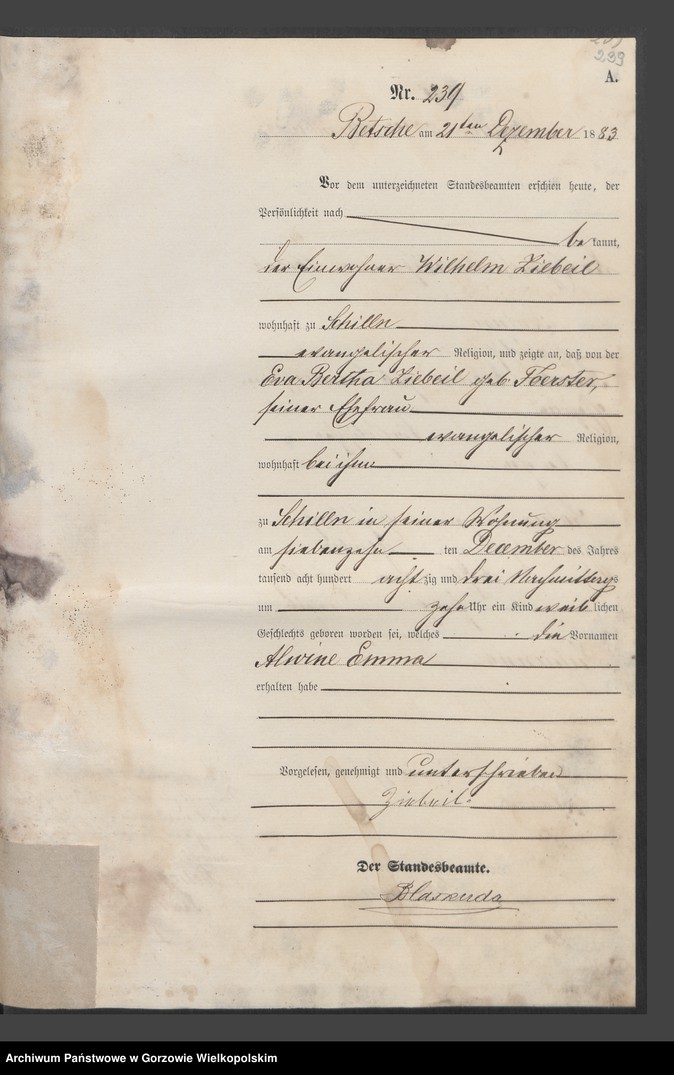 239
A.
Nr. 239
Betsche am 21ten Dezember 1883
Vor dem unterzeichneten Standesbeamten erschien heute, der
Persönlichkeit nach
be kannt,
der Einwohner Wilhelm Ziebeil
wohnhaft zu Schilln
evangelischer Religion, und zeigte an, daß von der
Eva Bertha Ziebeil geb. Foerster,
seiner Ehefrau
evangelischer Religion,
wohnhaft bei ihm
zu Schilln in seiner Wohnung
am siebenzehn ten December des Jahres
tausend acht hundert acht zig und drei Nachmittags
um zehn Uhr ein Kind weib lichen
Geschlechts geboren worden sei, welches die Vornamen
Alwine Emma
erhalten habe
Vorgelesen, genehmigt und unterschrieben
Ziebeil.
Der Standesbeamte.
Archiwum Państwowe w Gorzowie Wielkopolskim